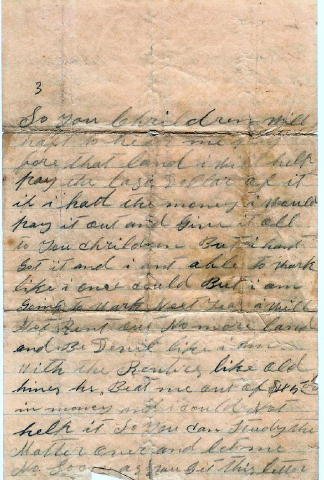 3
So You Children Will
haft to help me pay
fore that land i Will help
pay the Last Dollar of it
if i hatt the money i Would
pay it out and Give it all
to You children But i hant
Got it and i ant able to Work
like i once could But i am
Going to Work Next Year i Will
Not Rent out No more land
and Be Devil like i am
With the Renters like old
hines he Beat me out of
in money and i could Not
help it So You Can Study the
Matter over and let me
No Soon as You Get this letter